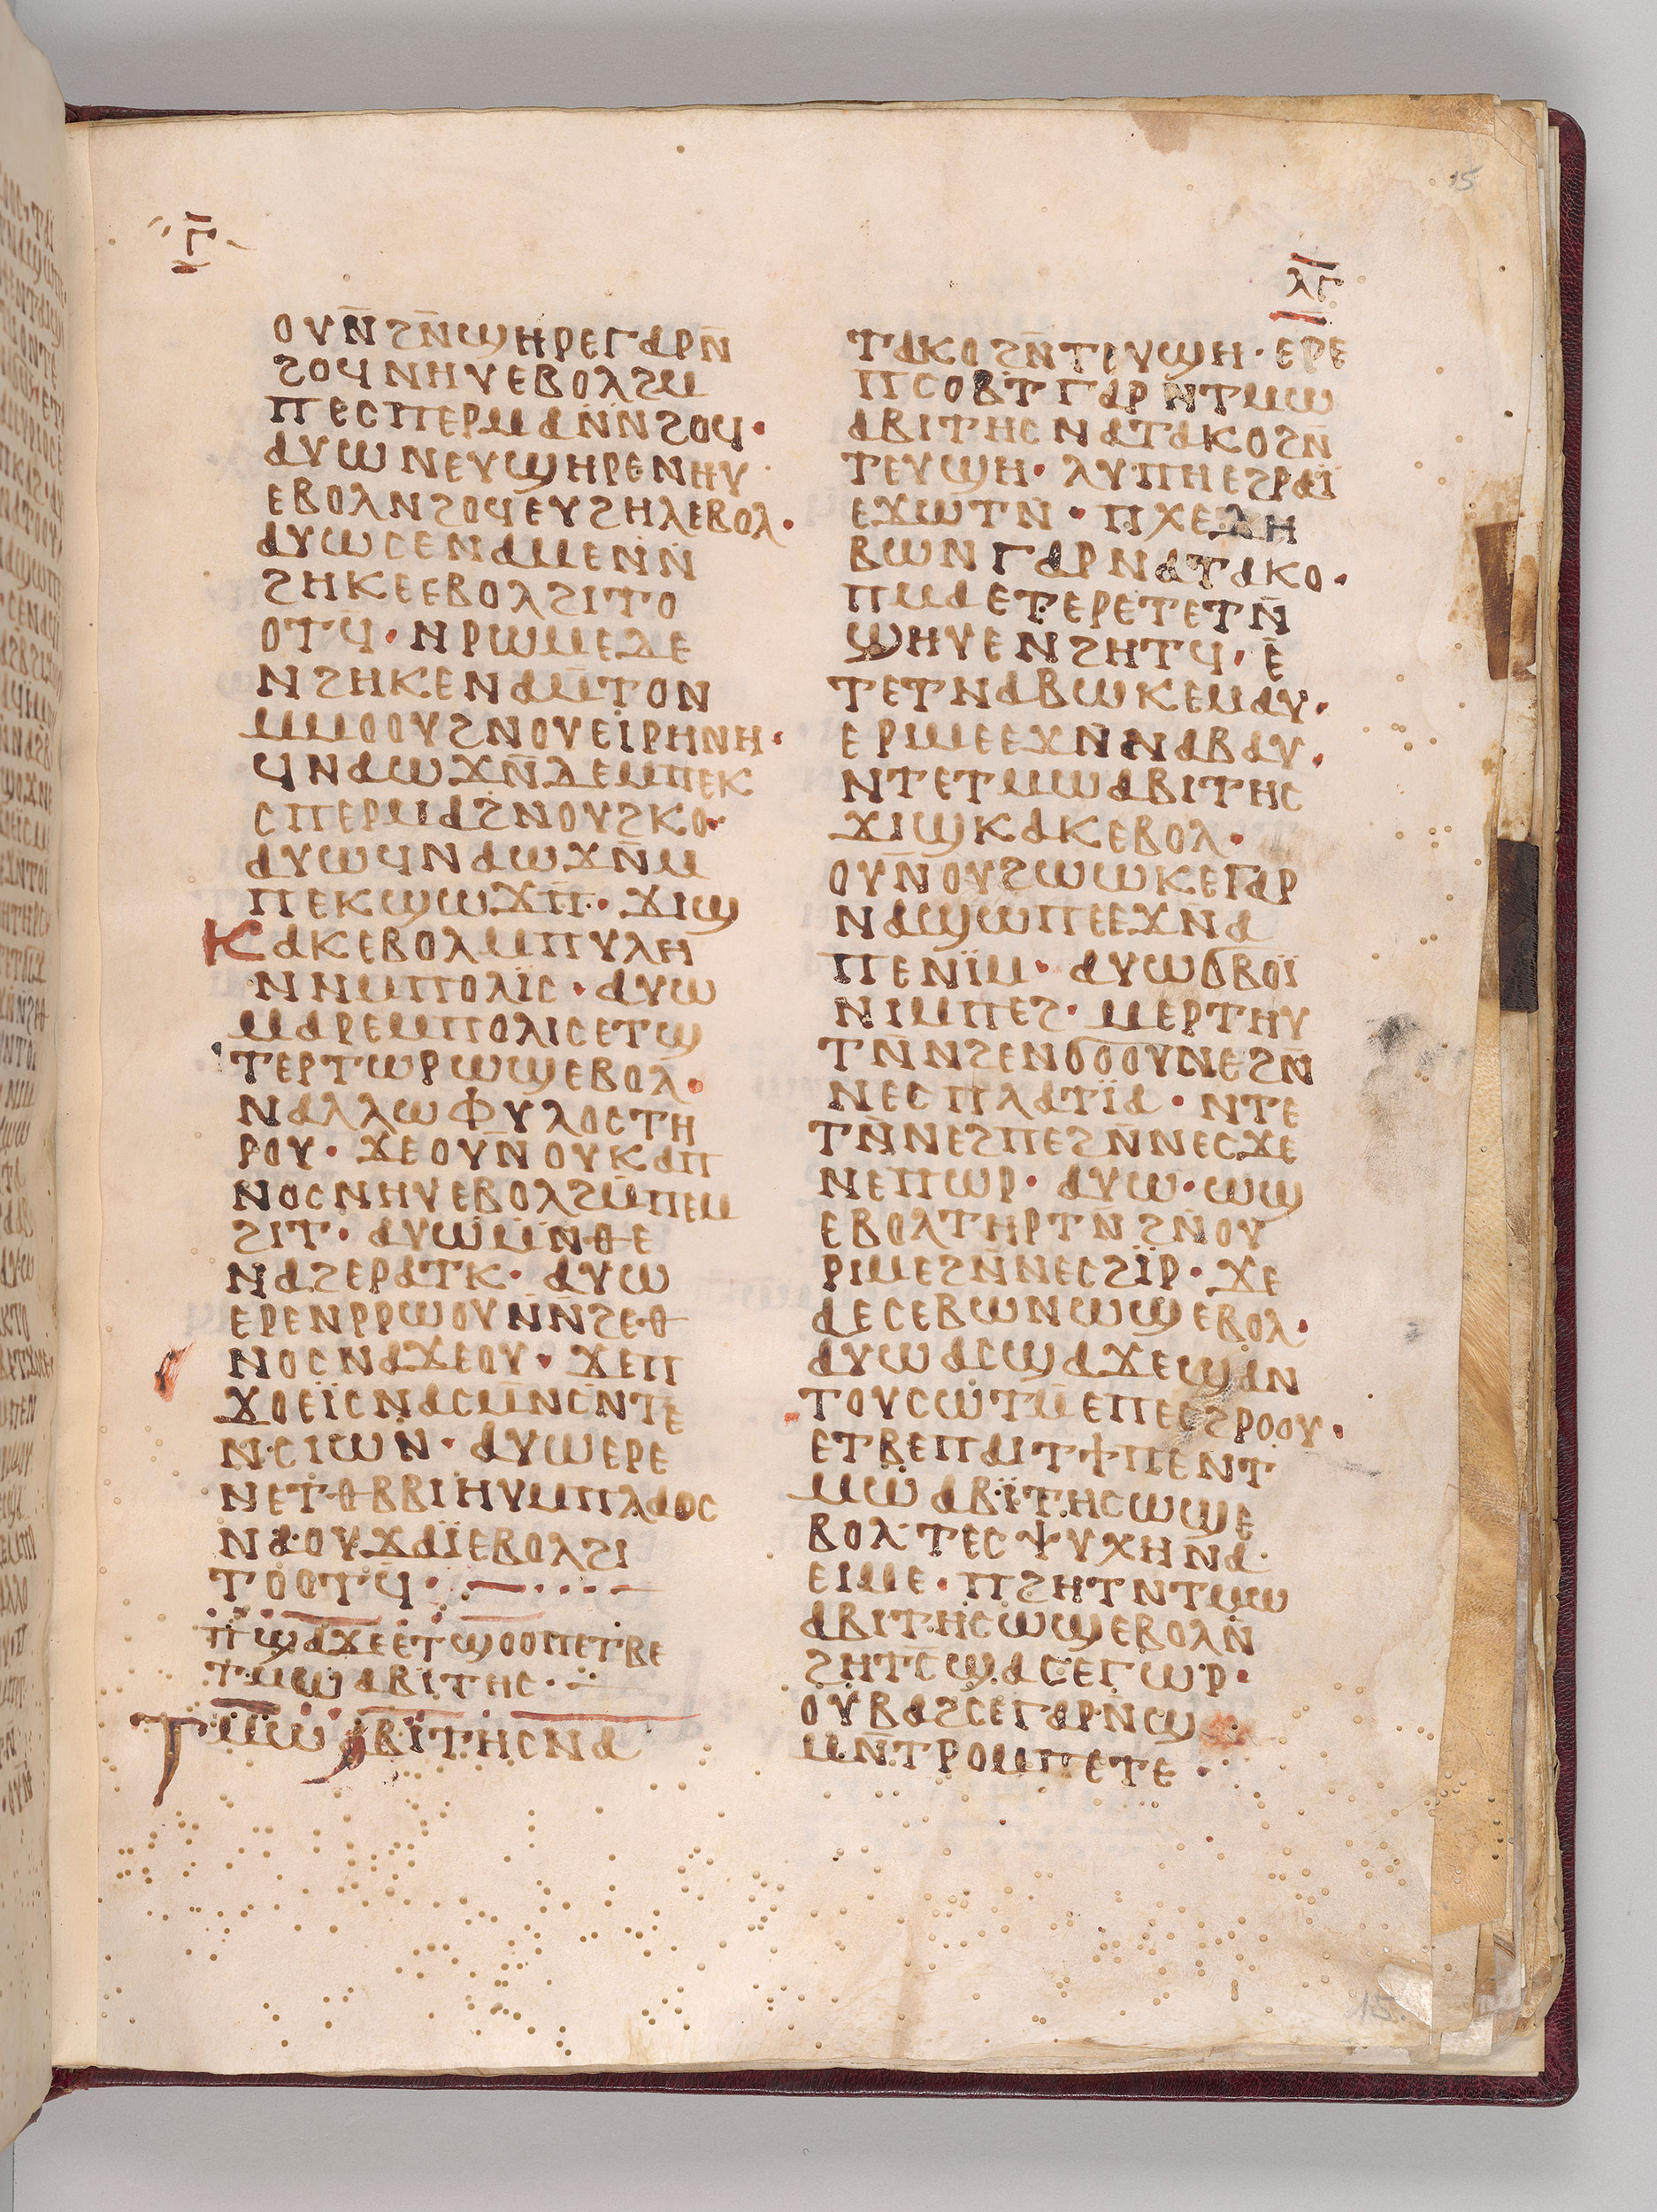 15
ⲅ̅
ⲗⲅ̅
ⲟⲩⲛ̅ϩⲛ̅ϣⲏⲣⲉⲅⲁⲣⲛ̅
ϩⲟϥⲛⲏⲩⲉⲃⲟⲗϩⲙ
ⲡⲉⲥⲡⲉⲣⲙⲁⲛ̅ⲛϩⲟϥ·
ⲁⲩⲱⲛⲉⲩϣⲏⲣⲉⲛⲏⲩ
ⲉⲃⲟⲗⲛϩⲟϥⲉⲩϩⲏⲗⲉⲃⲟⲗ·
ⲁⲩⲱⲥⲉⲛⲁⲙⲉⲛ̇ⲛ̇
ϩⲏⲕⲉⲉⲃⲟⲗϩⲓⲧⲟ
ⲟⲧϥ̅·ⲛⲣⲱⲙⲉⲇⲉ
ⲛϩⲏⲕⲉⲛⲁⲙ̅ⲧⲟⲛ
ⲙⲙⲟⲟⲩϩⲛⲟⲩⲉⲓⲣⲏⲛⲏ·
ϥⲛⲁⲱϫⲛ̅ⲇⲉⲙⲡⲉⲕ
ⲥⲡⲉⲣⲙⲁϩⲛⲟⲩϩⲕⲟ·
ⲁⲩⲱϥⲛⲁⲱϫⲛ̅ⲙ
ⲡⲉⲕϣⲱϫⲡ̅·ϫⲓϣ
ⲕⲁⲕⲉⲃⲟⲗⲙⲡⲩⲗⲏ
ⲛⲛⲙⲡⲟⲗⲓ̈ⲥ·ⲁⲩⲱ
ⲙⲁⲣⲉⲙⲡⲟⲗⲓⲥⲉⲧϣ
ⲧⲉⲣⲧⲱⲣⲱϣⲉⲃⲟⲗ·
ⲛⲁⲗⲗⲱⲫⲩⲗⲟⲥⲧⲏ
ⲣⲟⲩ·ϫⲉⲟⲩⲛ̅ⲟⲩⲕⲁⲡ
ⲛⲟⲥⲛⲏⲩⲉⲃⲟⲗϩⲙ̅ⲡⲉⲙ
ϩⲓⲧ·ⲁⲩⲱⲙ̇ⲛ̇ⲑⲉ
ⲛⲁϩⲉⲣⲁⲧⲕ·ⲁⲩⲱ
ⲉⲣⲉⲛⲣⲣⲱⲟⲩⲛ̅ⲛ̅ϩⲉⲑ
ⲛⲟⲥⲛⲁϫⲉⲟⲩ·ϫⲉⲡ
ϫⲟⲉⲓ̈ⲥⲛⲁⲥⲙⲛⲥⲛ̅ⲧⲉ
ⲛⲥⲓⲱⲛ·ⲁⲩⲱⲉⲣⲉ
ⲛⲉⲧⲑⲃⲃⲓⲏⲩⲙⲡⲗⲁⲟⲥ
ⲛⲁⲟⲩϫⲁⲓ̈ⲉⲃⲟⲗϩⲓ
ⲧⲟⲟⲧϥ̅·
ⲡϣⲁϫⲉⲉⲧϣⲟⲟⲡⲉⲧⲃⲉ
ⲧⲙⲱⲁⲃⲓⲧⲏⲥ·
ⲧⲙⲱⲁⲃⲓⲧⲏⲥⲛⲁ
ⲧⲁⲕⲟϩⲛ̅ⲧⲉⲩϣⲏ·ⲉⲣⲉ
ⲡⲥⲟⲃⲧⲅⲁⲣⲛⲧⲙⲱ
ⲁⲃⲓⲧⲏⲥⲛⲁⲧⲁⲕⲟϩⲛ̅
ⲧⲉⲩϣⲏ·ⲗⲩⲡⲏⲉϩⲣⲁⲓ̈
ⲉϫⲱⲧⲛ̅·ⲡϫⲉⲗⲏ
ⲃⲱⲛⲅⲁⲣⲛⲁⲧⲁⲕⲟ·
ⲡⲙⲁⲉⲧⲉⲣⲉⲧⲉⲧⲛ̅
ϣⲏⲩⲉⲛϩⲏⲧϥ·ⲉ̅
ⲧⲉⲧⲛⲁⲃⲱⲕⲉⲙⲁⲩ·
ⲉⲣⲙⲉⲉϫⲛ̅ⲛⲁⲃⲁⲩ·
ⲛⲧⲉⲧⲙⲱⲁⲃⲓⲧⲏⲥ
ϫⲓϣⲕⲁⲕⲉⲃⲟⲗ·
ⲟⲩⲛ̅ⲟⲩϩⲱⲱⲕⲉⲅⲁⲣ
ⲛⲁϣⲱⲡⲉⲉϫⲛ̅ⲁ
ⲡⲉⲛⲓ̈ⲙ·ⲁⲩⲱϭⲃⲟⲓ̈
ⲛⲓⲙⲡⲉϩ·ⲙⲉⲣⲧⲏⲩ
ⲧⲛ̅ⲛϩⲉⲛϭⲟⲟⲩⲛⲉϩⲛ̅
ⲛⲉⲥⲡⲗⲁⲧⲓ̈ⲁ·ⲛⲧⲉ
ⲧⲛ̅ⲛⲉϩⲡⲉϩⲛ̅ⲛⲉⲥϫⲉ
ⲛⲉⲡⲱⲣ·ⲁⲩⲱ·ⲱϣ
ⲉⲃⲟⲗⲧⲏⲣⲧⲛ̅ϩⲛ̅ⲟⲩ
ⲣⲓⲙⲉϩⲛ̅ⲛⲉⲥϩⲓ̈ⲣ·ϫⲉ
ⲁⲉⲥⲉⲃⲱⲛⲱϣⲉⲃⲟⲗ·
ⲁⲩⲱⲁⲥϣⲁϫⲉϣⲁⲛ
ⲧⲟⲩⲥⲱⲧⲙ̅ⲉⲡⲉⲥϩⲣⲟⲟⲩ·
ⲉⲧⲃⲉⲡⲁⲓⲧϯⲡⲉⲛⲧ
ⲙⲱⲁⲃⲓ̈ⲧⲏⲥⲱϣⲉ
ⲃⲟⲗⲧⲉⲥⲯⲩⲭⲏⲛⲁ
ⲉⲓⲙⲉ·ⲡϩⲏⲧⲛⲧⲙⲱ
ⲁⲃⲓⲧⲏⲥⲱϣⲉⲃⲟⲗⲛ̅
ϩⲏⲧⲥ̅ϣⲁⲥⲉⲅⲱⲣ·
ⲟⲩⲃⲁϩⲥⲉⲅⲁⲣⲛ̅ϣ
ⲙⲛ̅ⲧⲣⲟⲙⲡⲉⲧⲉ·
15.